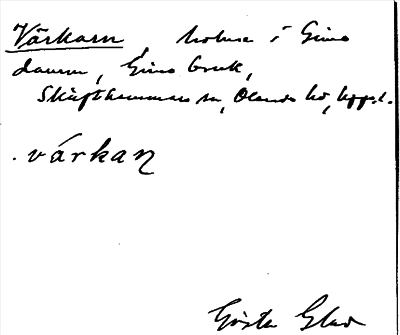 Vårkarn holme i Gimo
dammen, Gimo bruk,
Skäfthammars sn, Olands hd, Uppl.
vårkan
Gösta Glad